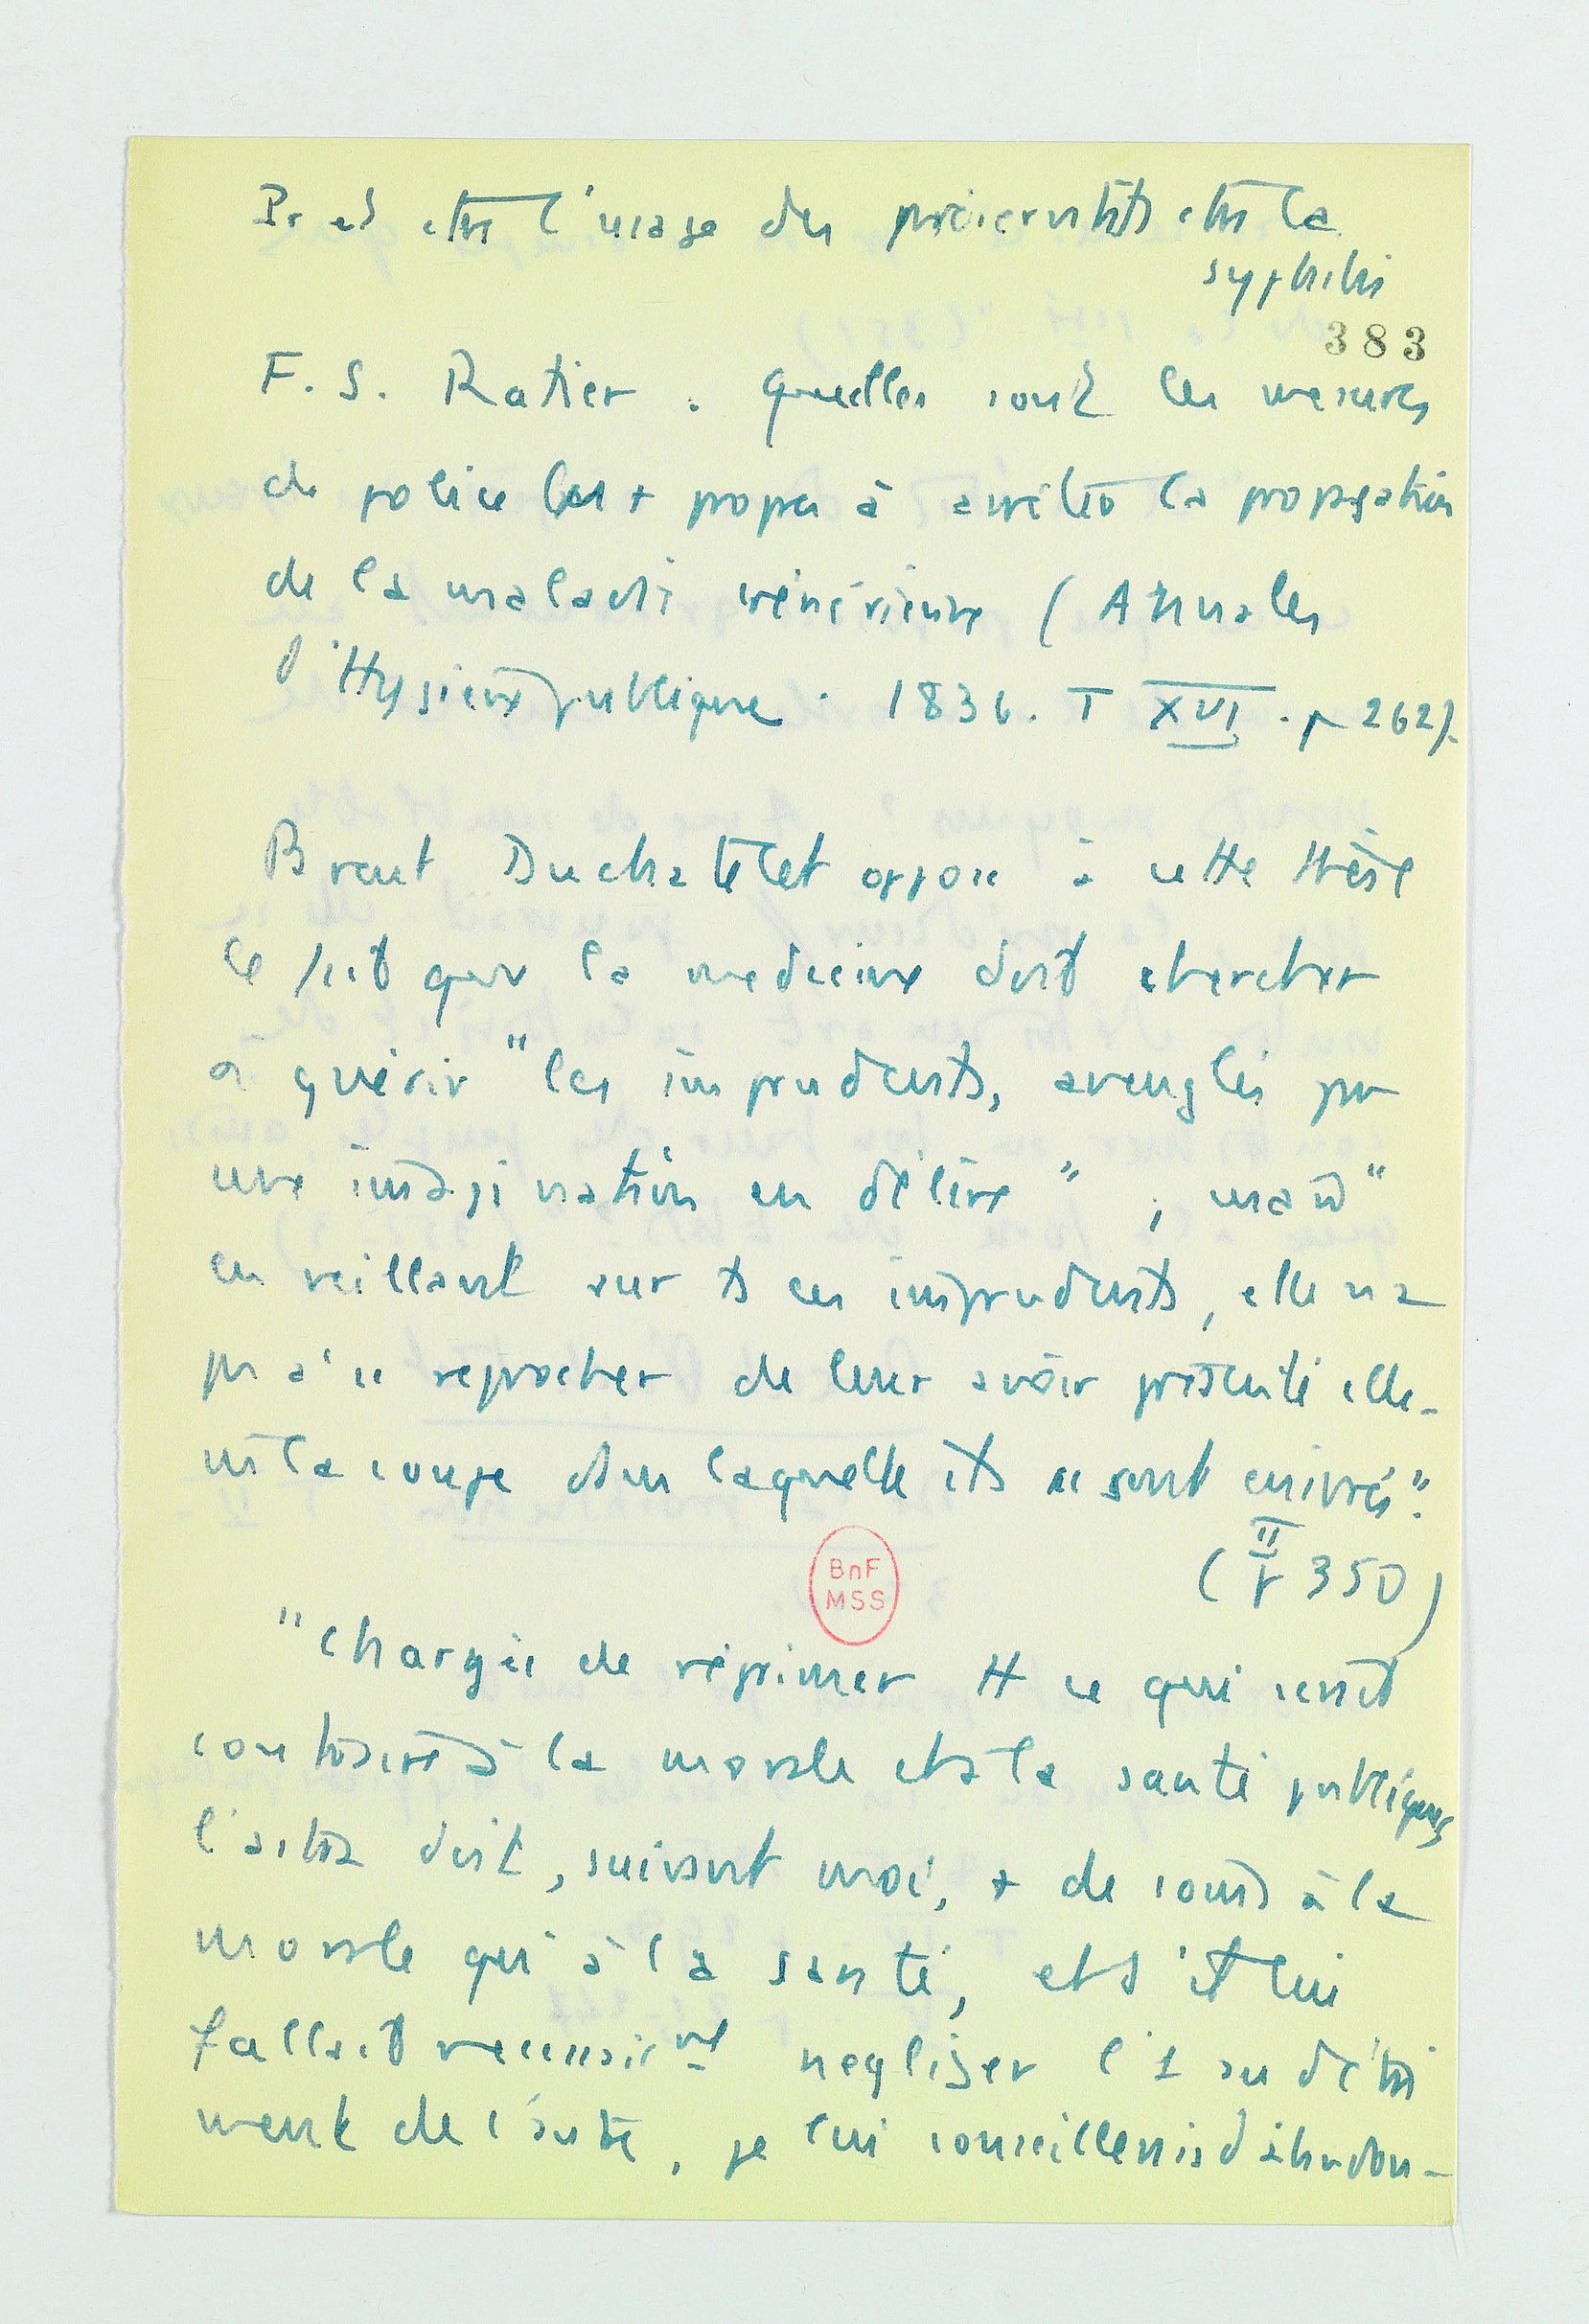 Pr et ctre l'usage des préservatifs ctre la
syphilis
383
F. S. Ratier. Quelles sont les mesures
de police les + propres à arrêter la propagation
de la maladie vénérienne (Annales
d'Hygiène publique. 1836. T XVI. p 262).
Parent Duchatelet oppose à cette thèse
le fait que la medecine doit chercher
à guérir "les imprudents, aveuglés par
une imagination en délire", mais "
en veillant sur ts ces imprudents, elle n'a
pas à se reprocher de leur avoir présenté elle-
m la coupe dans laquelle ils se sont enivrés".
(II p 350)
BnF
MSS
"Chargée de réprimer tt ce qui serait
contraire à la morale et à la santé publiques
doit, suivant moi, + de soins à la
morale qu'à la santé, et s'il lui
fallait nécessairemt negliger l'1 au détri
ment de l'autre, je lui conseillerais d'abandon-